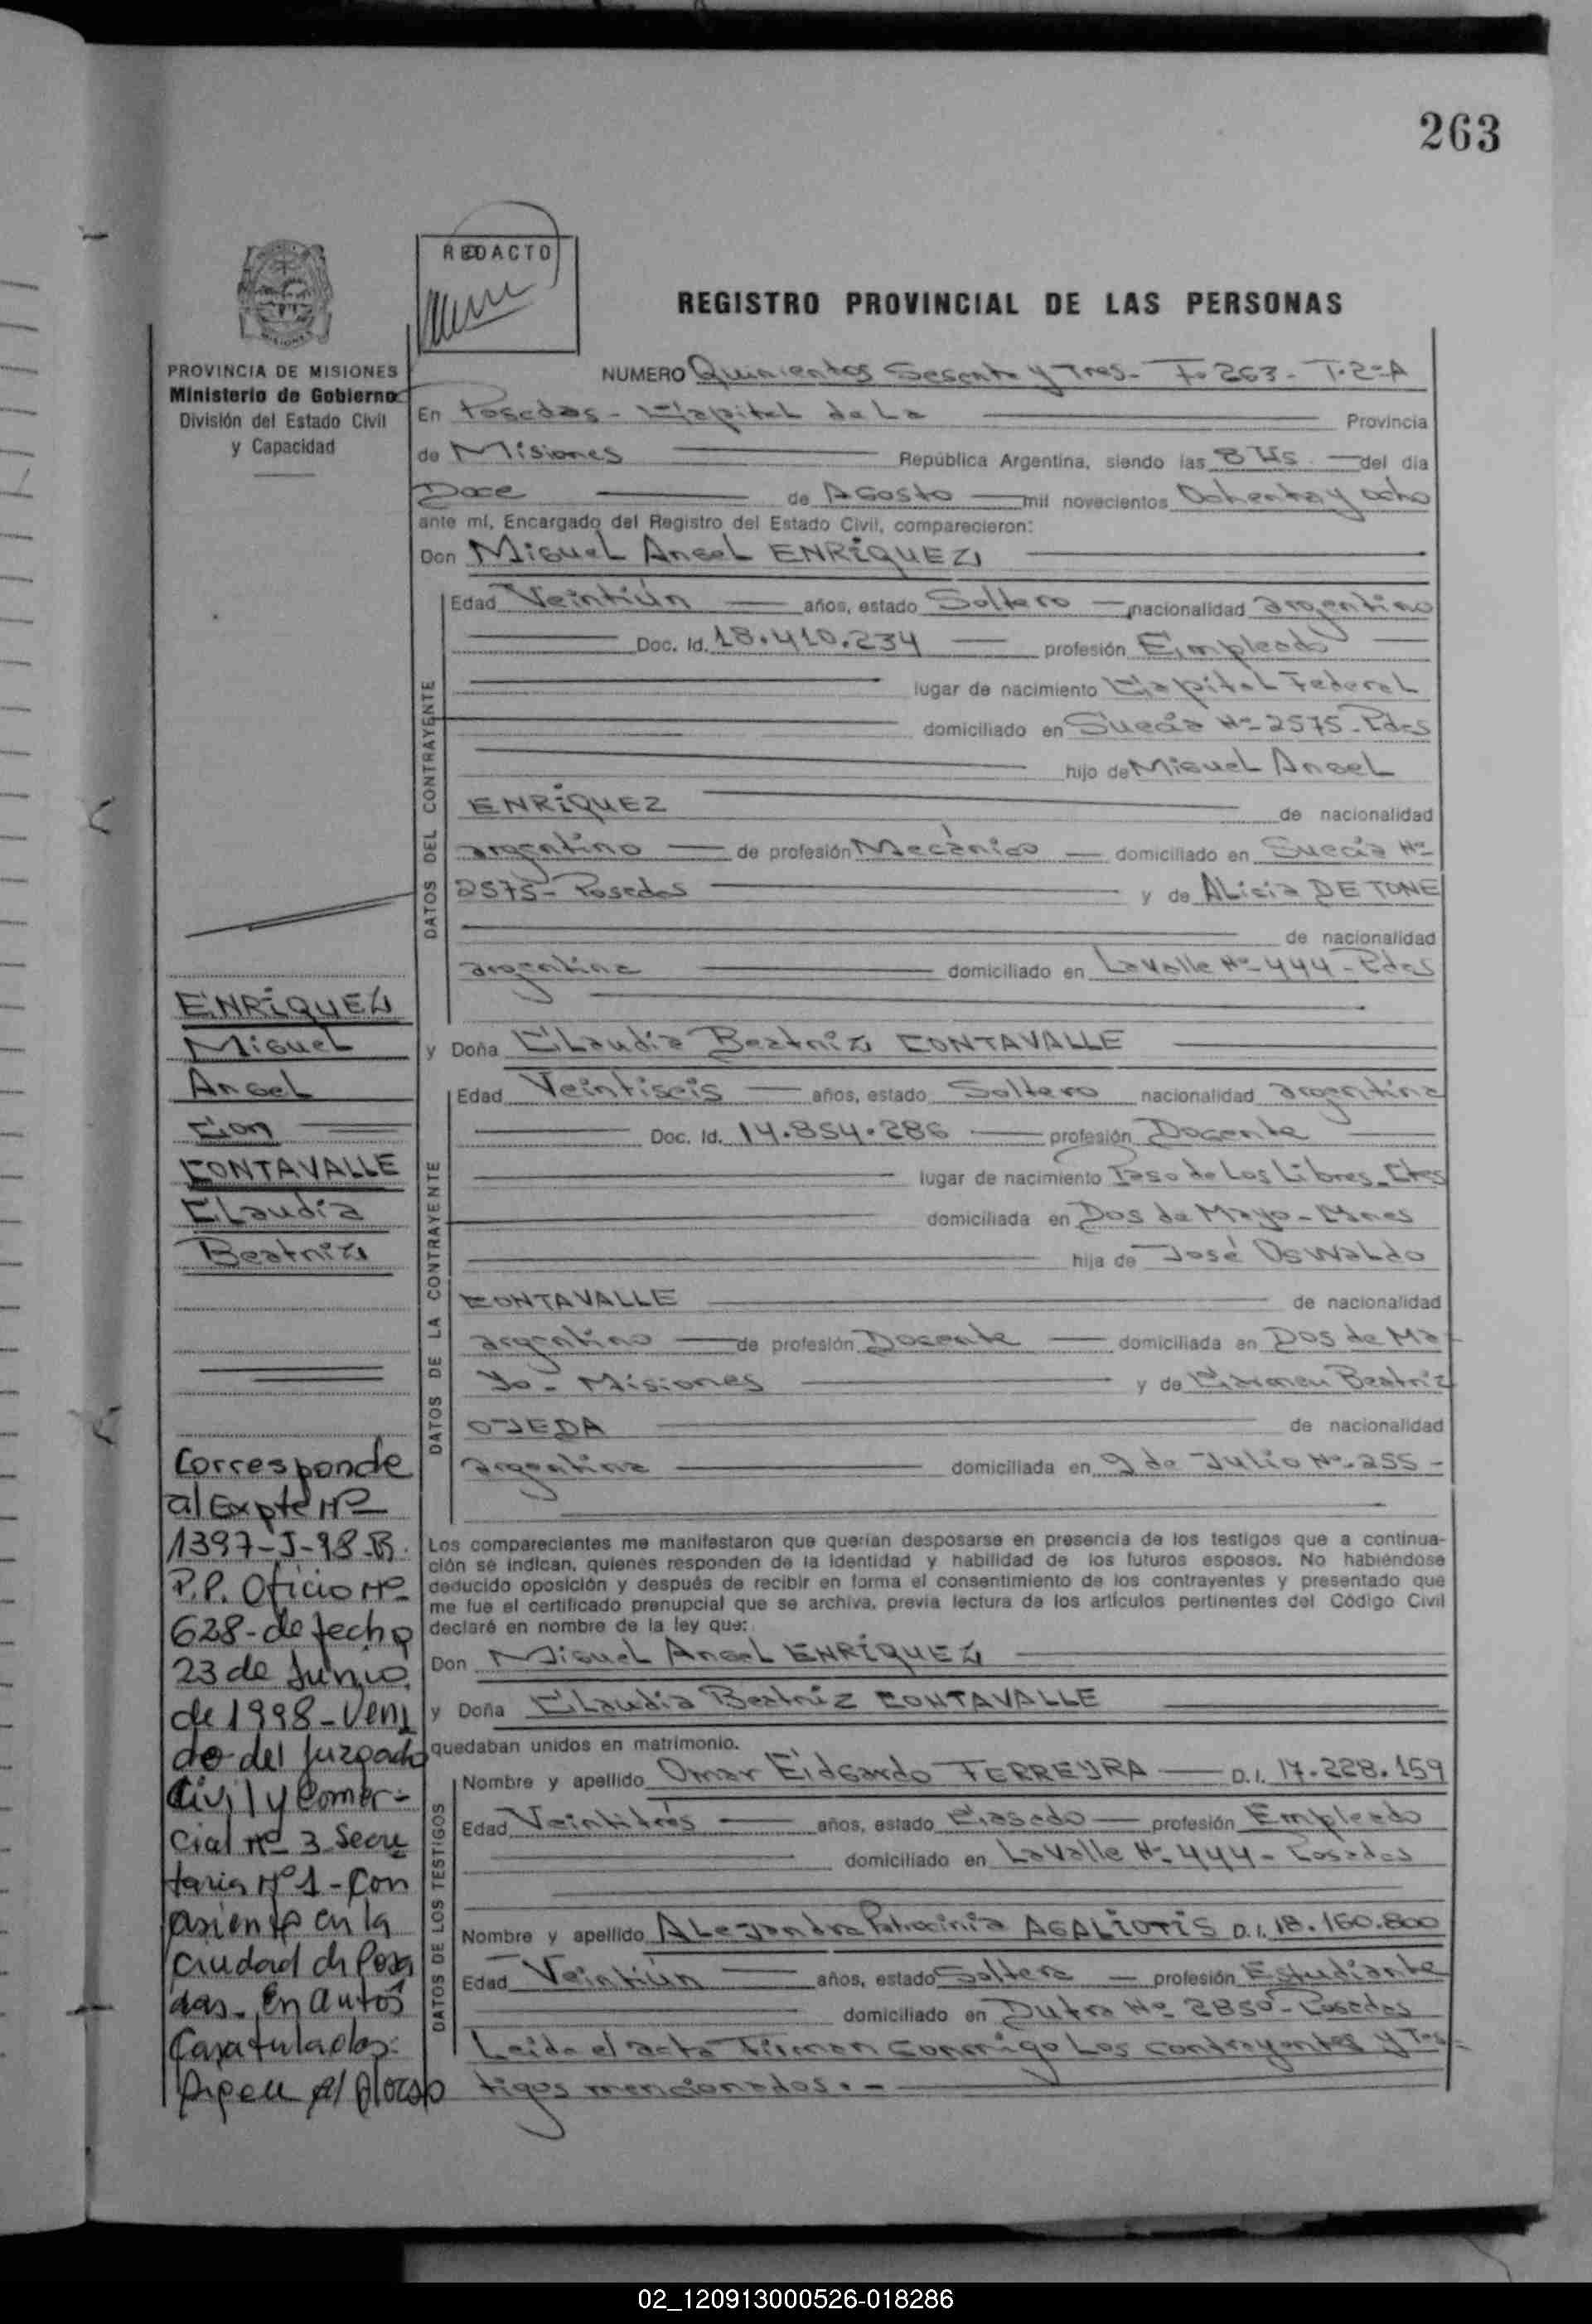 263
REDACTO
REGISTRO PROVINCIAL DE LAS PERSONAS
PROVINCIA DE MISIONES
Ministerio de Gobierno
División del Estado Civil
y Capacidad
NUMERO Quinientos Sesenta y Tres- F- 263- T-2-A
En Posadas- Capital de La Provincia
de Misiones República Argentina, siendo las 8 Hs. del día
Doce de Agosto mil novecientos Ochenta y ocho
ante mí, Encargado del Registro del Estado Civil, comparecieron:
Don Miguel Angel ENRÍQUEZ
DATOS DEL CONTRAYENTE
Edad Veintiún años, estado Soltero nacionalidad argentino
Doc. Id. 18.410.234 profesión Empleado
lugar de nacimiento Capital Federal
domiciliado en Suecia Nº 2575- Pdas
hijo de Miguel Angel
ENRÍQUEZ de nacionalidad
argentino de profesión Mecánico domiciliado en Suecia Nº
2575- Posadas y de ALicia DE TONE
de nacionalidad
argentina domiciliado en Lavalle Nº 444- Pdas
y Doña Claudia Beatriz CONTAVALLE
DATOS DE LA CONTRAYENTE
Edad Veintiseis años, estado Soltera nacionalidad argentina
Doc. Id. 14.854.286 profesión Docente
lugar de nacimiento Paso de Los Libres- Ctes
domiciliada en Dos de Mayo- Mnes
hija de José Oswaldo
CONTAVALLE de nacionalidad
argentino de profesión Docente domiciliada en Dos de Ma-
yo- Misiones y de Carmen Beatriz
OJEDA de nacionalidad
argentina domiciliada en 9 de Julio Nº 255-
Los comparecientes me manifestaron que querían desposarse en presencia de los testigos que a continua-
ción se indican, quienes responden de la identidad y habilidad de los futuros esposos. No habiéndose
deducido oposición y después de recibir en forma el consentimiento de los contrayentes y presentado que
me fue el certificado prenupcial que se archiva, previa lectura de los artículos pertinentes del Código Civil
declaré en nombre de la ley que:
Don Miguel Angel ENRÍQUEZ
y Doña Claudia Beatriz CONTAVALLE
quedaban unidos en matrimonio.
DATOS DE LOS TESTIGOS
Nombre y apellido Omar Edgardo FERREYRA D.I. 17.228.159
Edad Veintitrés años, estado Casado profesión Empleado
domiciliado en Lavalle Nº 444- Posadas
Nombre y apellido ALejandra Patrocinia AGALIOTIS D.I. 18.160.800
Edad Veintiún años, estado Soltera profesión Estudiante
domiciliado en Dutra Nº 2850- Posadas
Leida el acta Firman conmigo Los contrayentes y Tes-
tigos mencionados.-
ENRÍQUEZ
Miguel
Angel
Con
CONTAVALLE
Claudia
Beatriz
Corresponde
al Expte Nº
1397-J-98-R.
P.P. Oficio Nº
628- de fecha
23 de Junio
de 1998- Veni
do del Juzgado
Civil y Comer-
cial nº 3 Secre
taria Nº 1- Con
asiento en la
ciudad de Posa
das- En autos
Caratulados:
al dorso
02_120913000526-018286